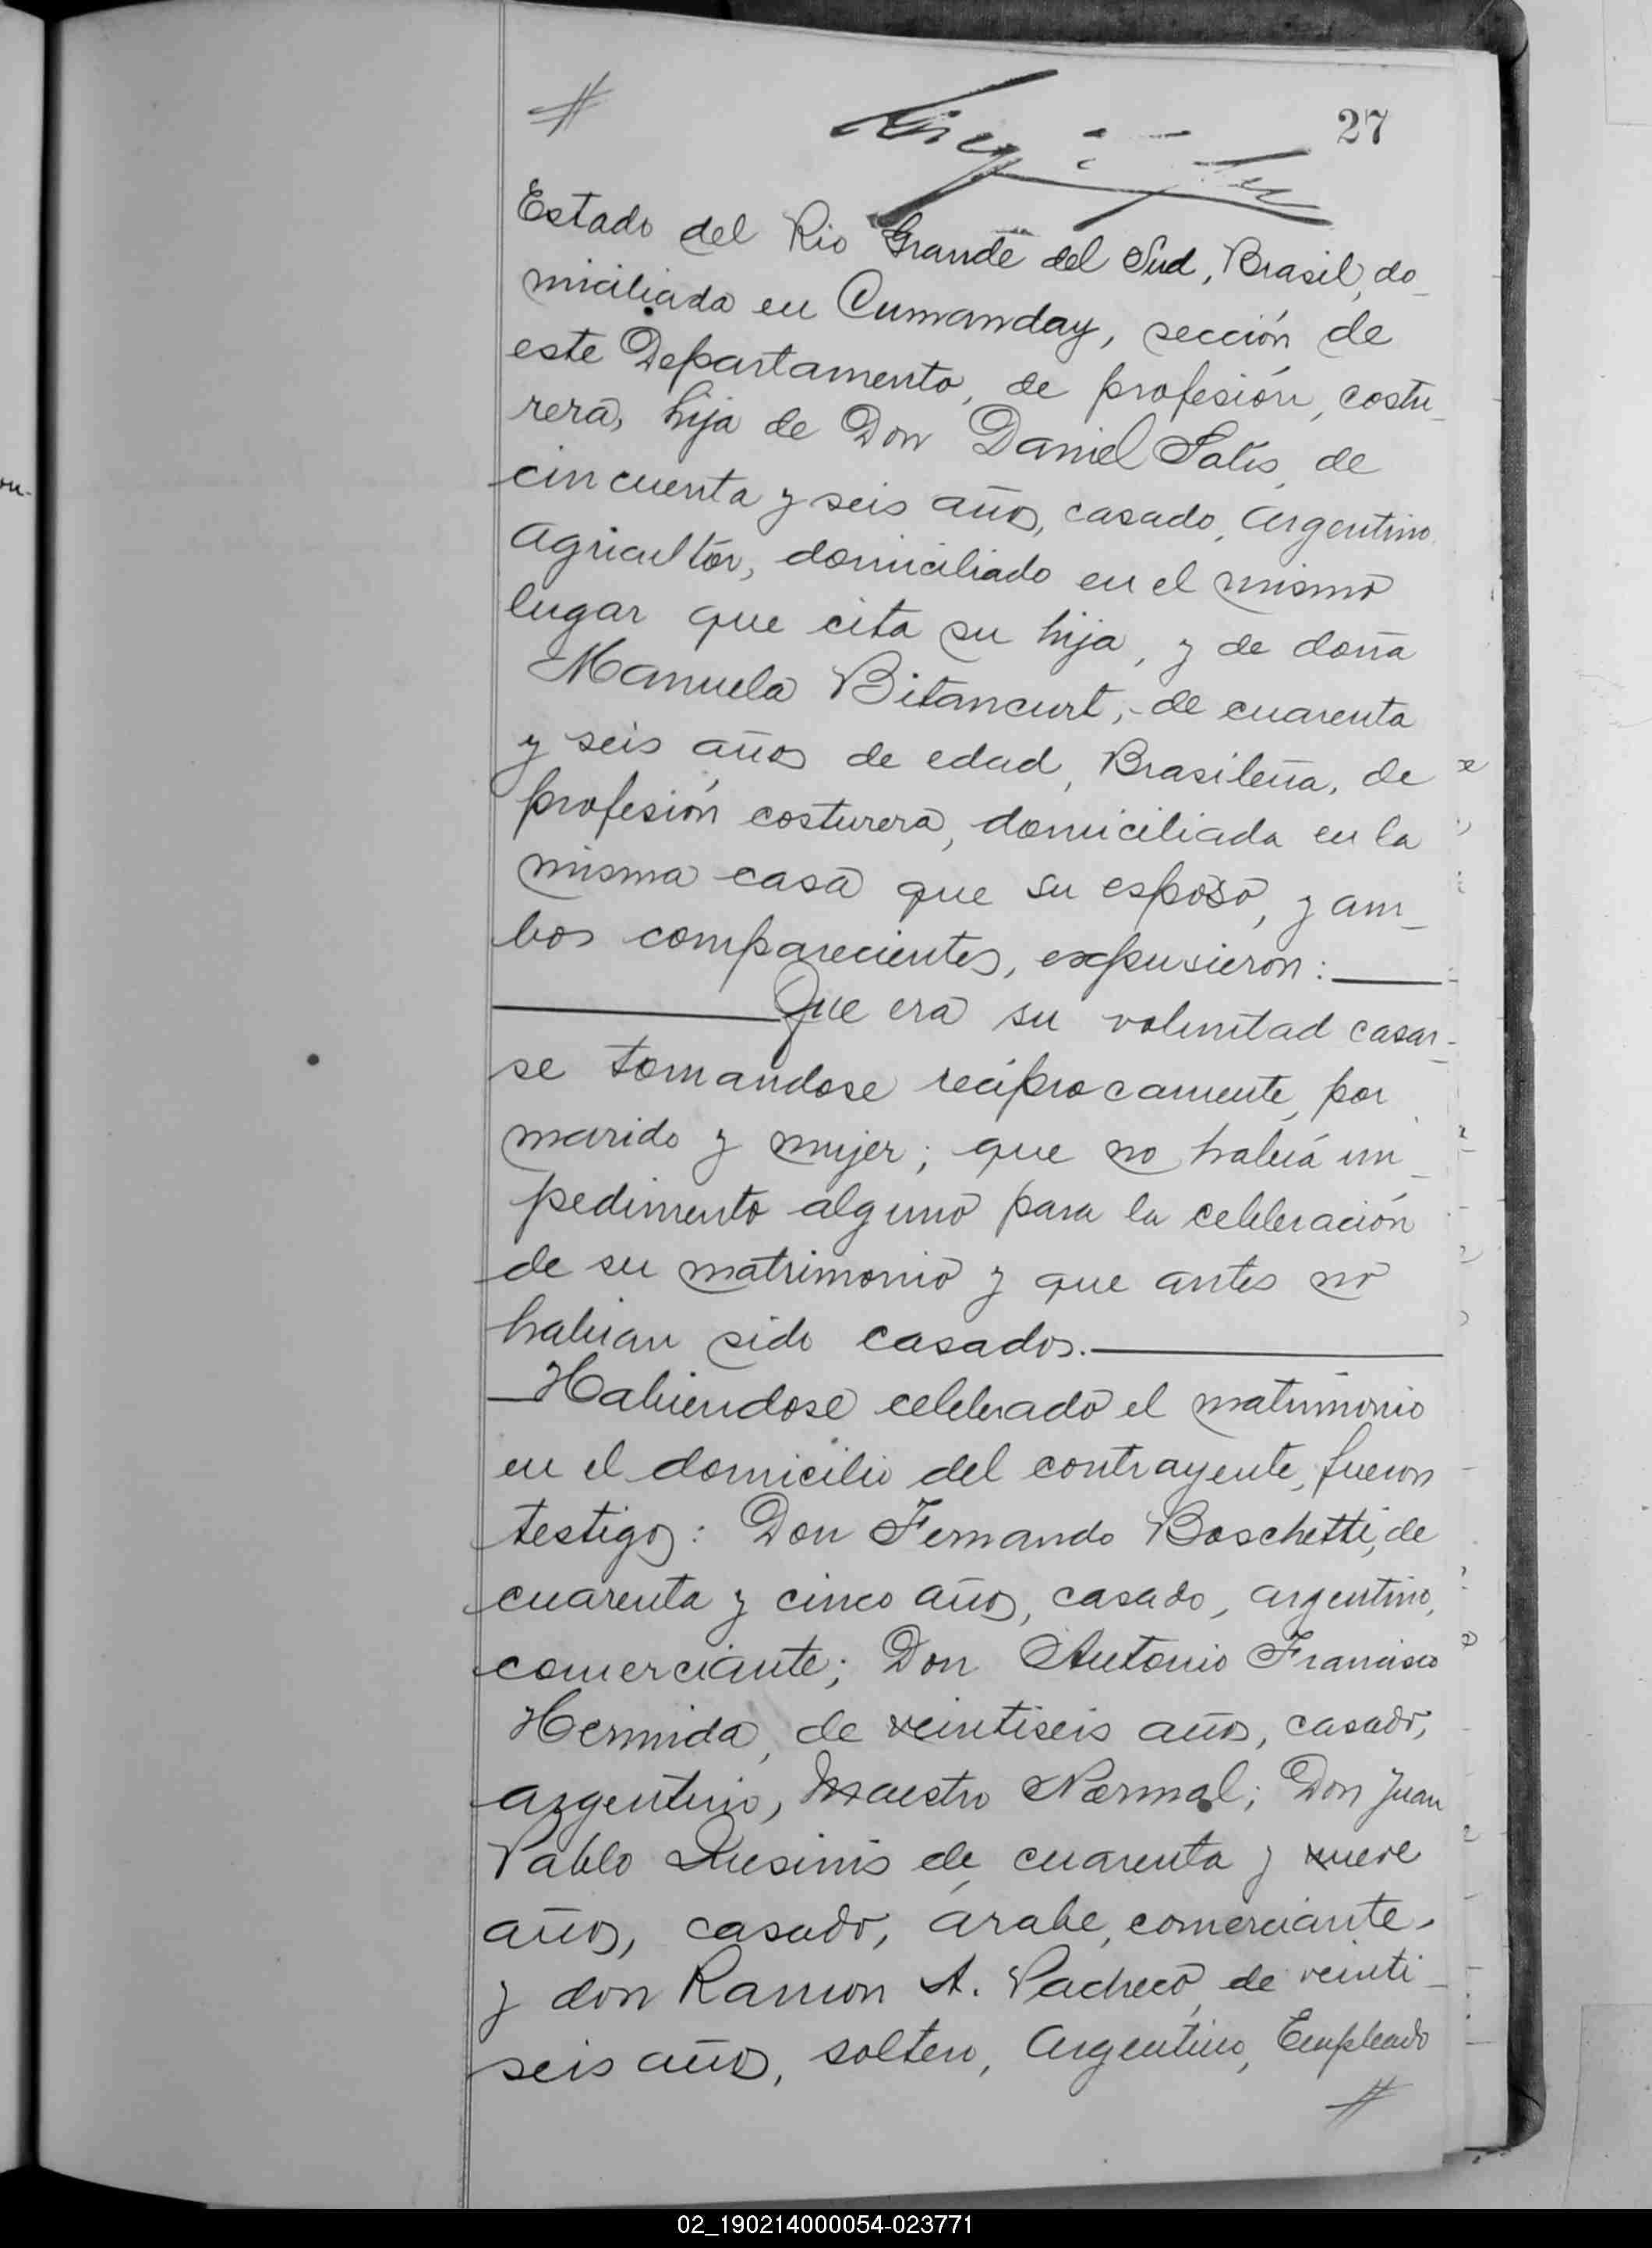 #
27
Estado del Rio Grande del Sud, Brasil, do_
miciliada en Cumanday, sección de
este Departamento, de profesión, costu_
rera, hija de Don Daniel Solis, de
cincuenta y seis años, casado, Argentino,
agricultor, domiciliado en el mismo
lugar que cita su hija, y de doña
Manuela Bitancurt, de cuarenta
y seis años de edad, Brasileña, de
profesión costurera, domiciliada en la
misma casa que su esposo, y am_
bos comparecientes, expusieron:
Que era su voluntad casar_
se tomandose reciprocamente, por
marido y mujer; que no habiá im_
pedimento alguno para la celebración
de su matrimonio y que antes no
habian sido casados.
Habiendose celebrado el matrimonio
en el domicilio del contrayente, fueron
testigos: Don Fernando Boschetti, de
cuarenta y cinco años, casado, argentino,
comerciante; Don Antonio Francisco
Hermida, de veintiseis años, casado,
argentino, Maestro Normal; Don Juan
Pablo de cuarenta y nueve
años, casado, árabe, comerciante,
y don Ramon A. Pacheco, de veinti_
seis años, soltero, Argentino, Empleado
#
02_190214000054-023771